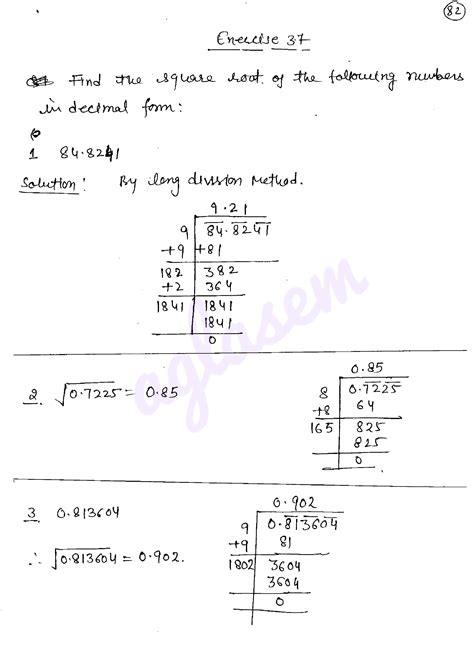 82
Exercise 37
Find the square root of the following numbers
in decimal form:
1 84.8241
Solution: By long division Method.
9.21
9 84.8241
+9 +81
182 382
+2 364
1841 1841
1841
0
2. √0.7225 = 0.85
0.85
8 0.7225
+8 64
165 825
825
0
3 0.813604
∴ √0.813604 = 0.902.
0.902
9 0.813604
+9 81
1802 3604
3604
0
aglasem